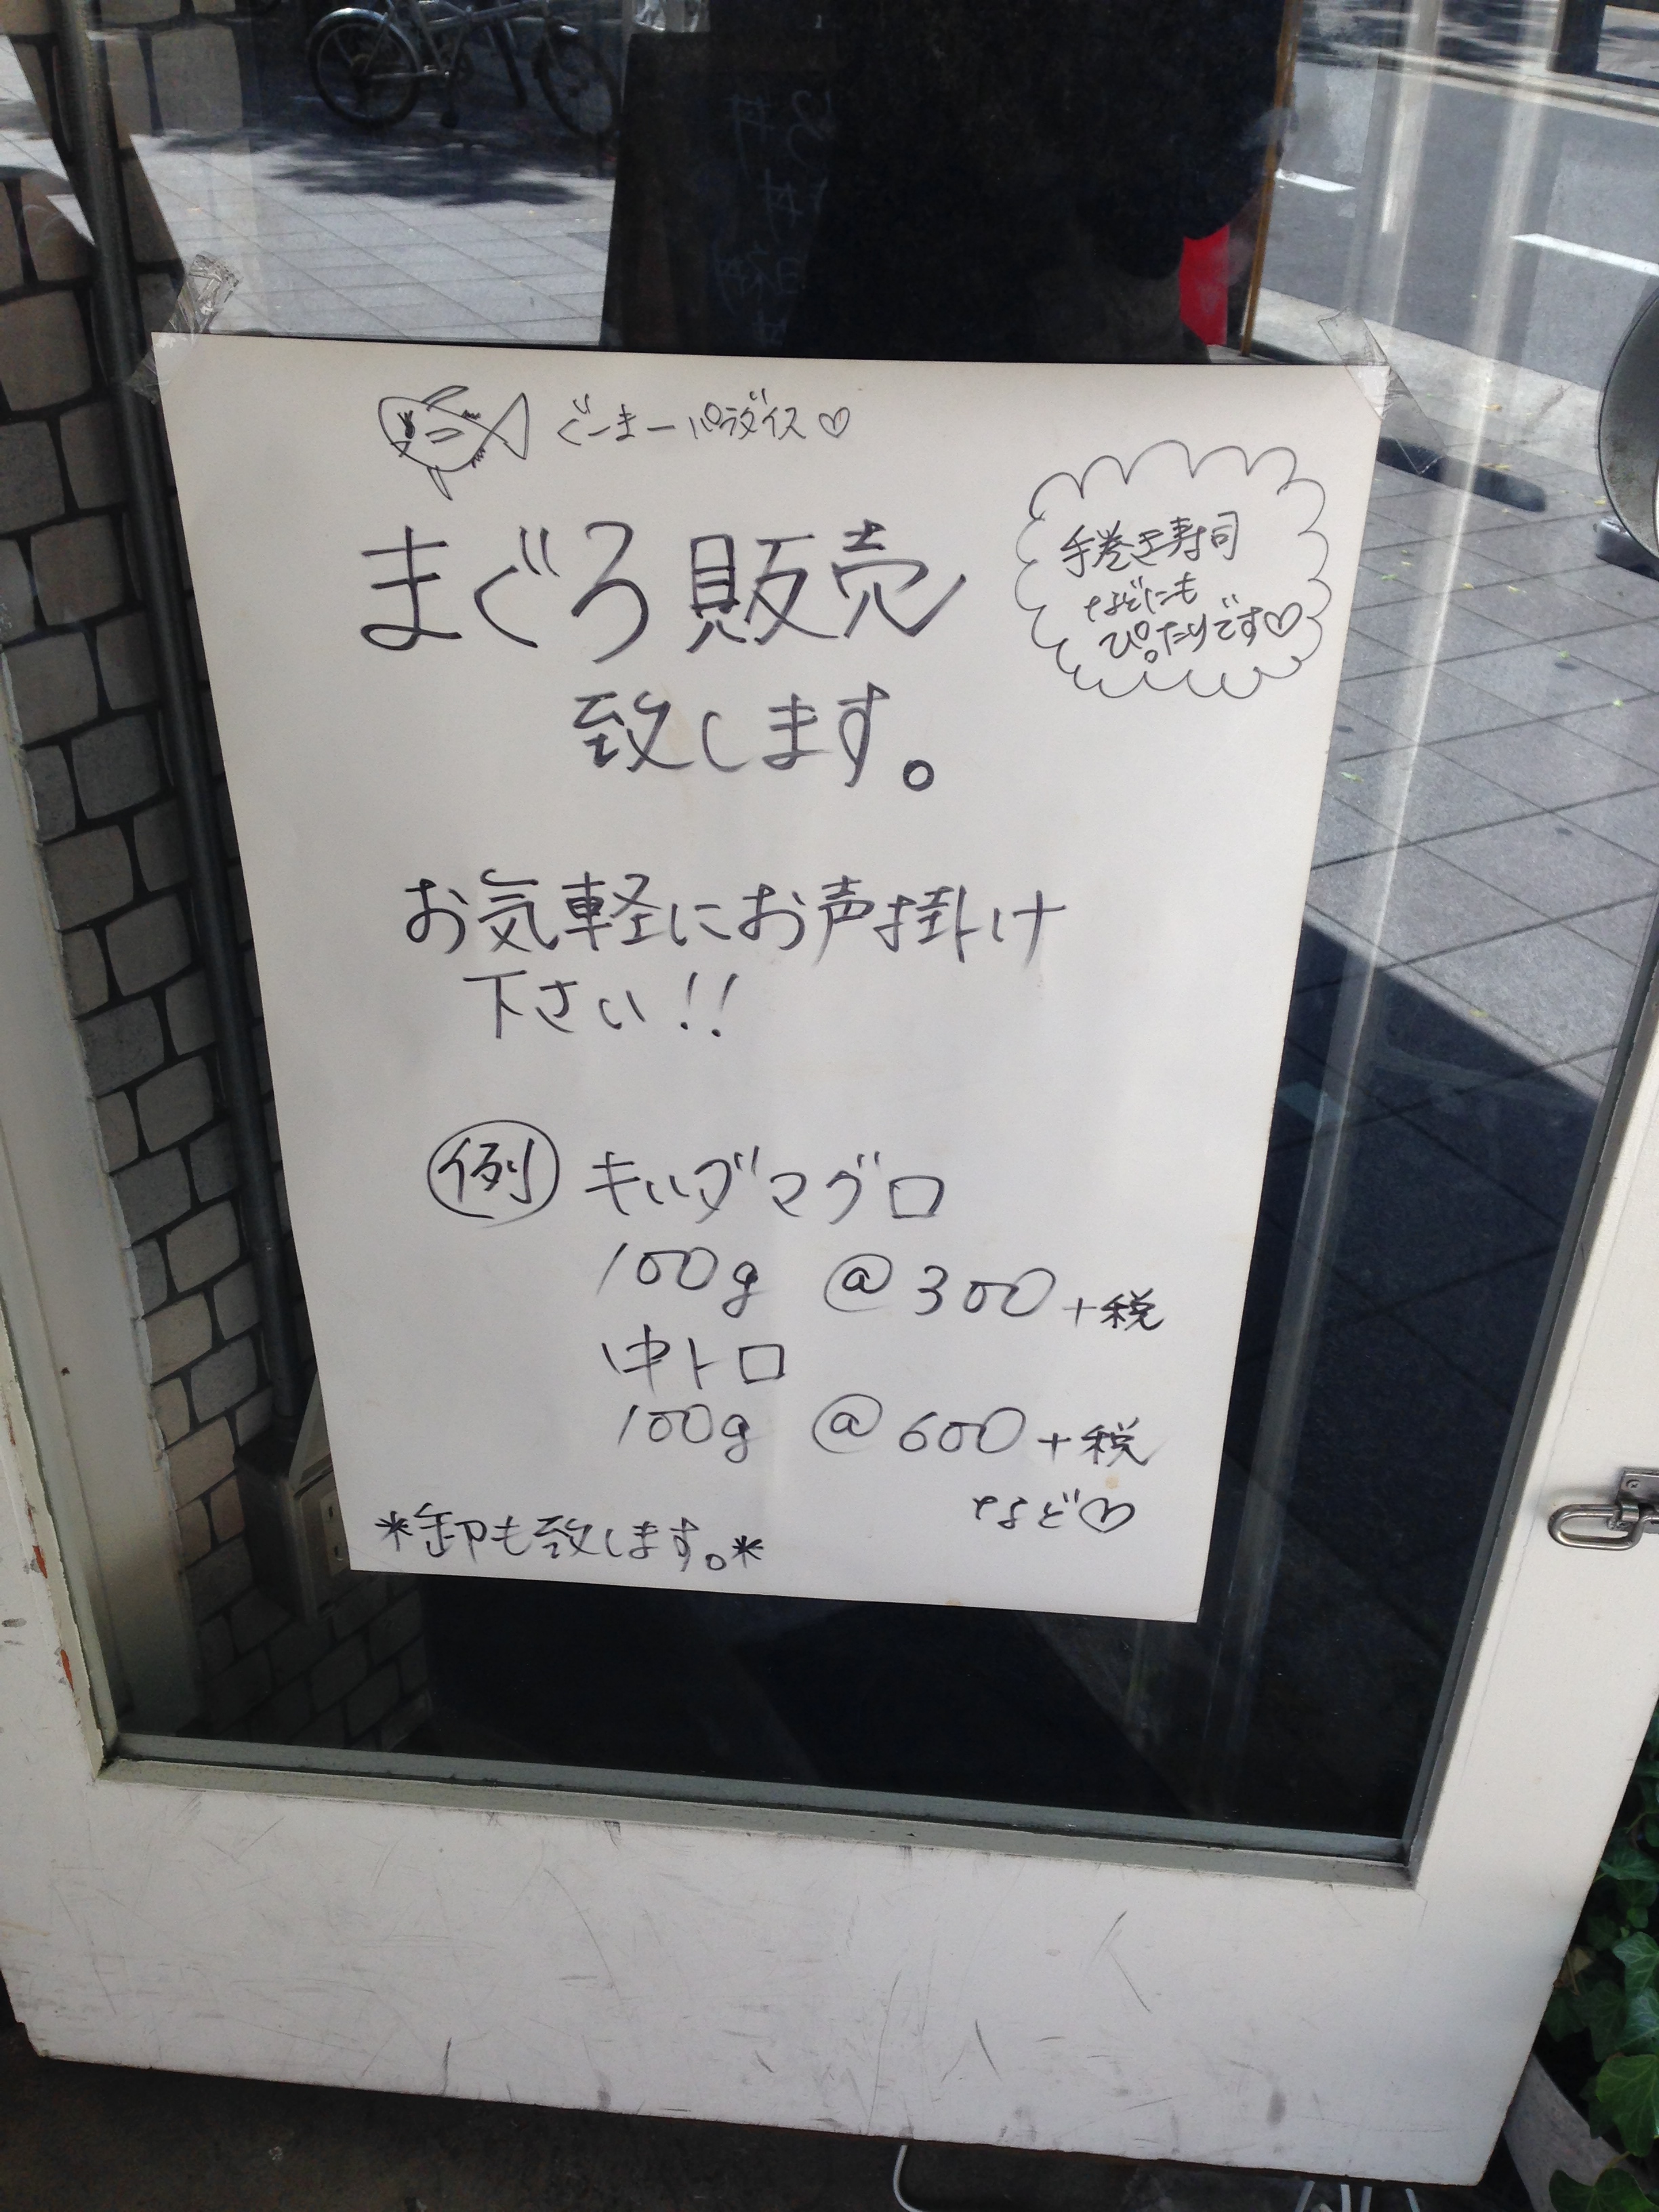 ぐーまーパラダイス♡
まぐろ販売
致します。
手巻き寿司
などにも
ぴったりです♡
お気軽にお声掛け
下さい!!
例 キハダマグロ
100g @300+税
中トロ
100g @600+税
など♡
*卸も致します。*